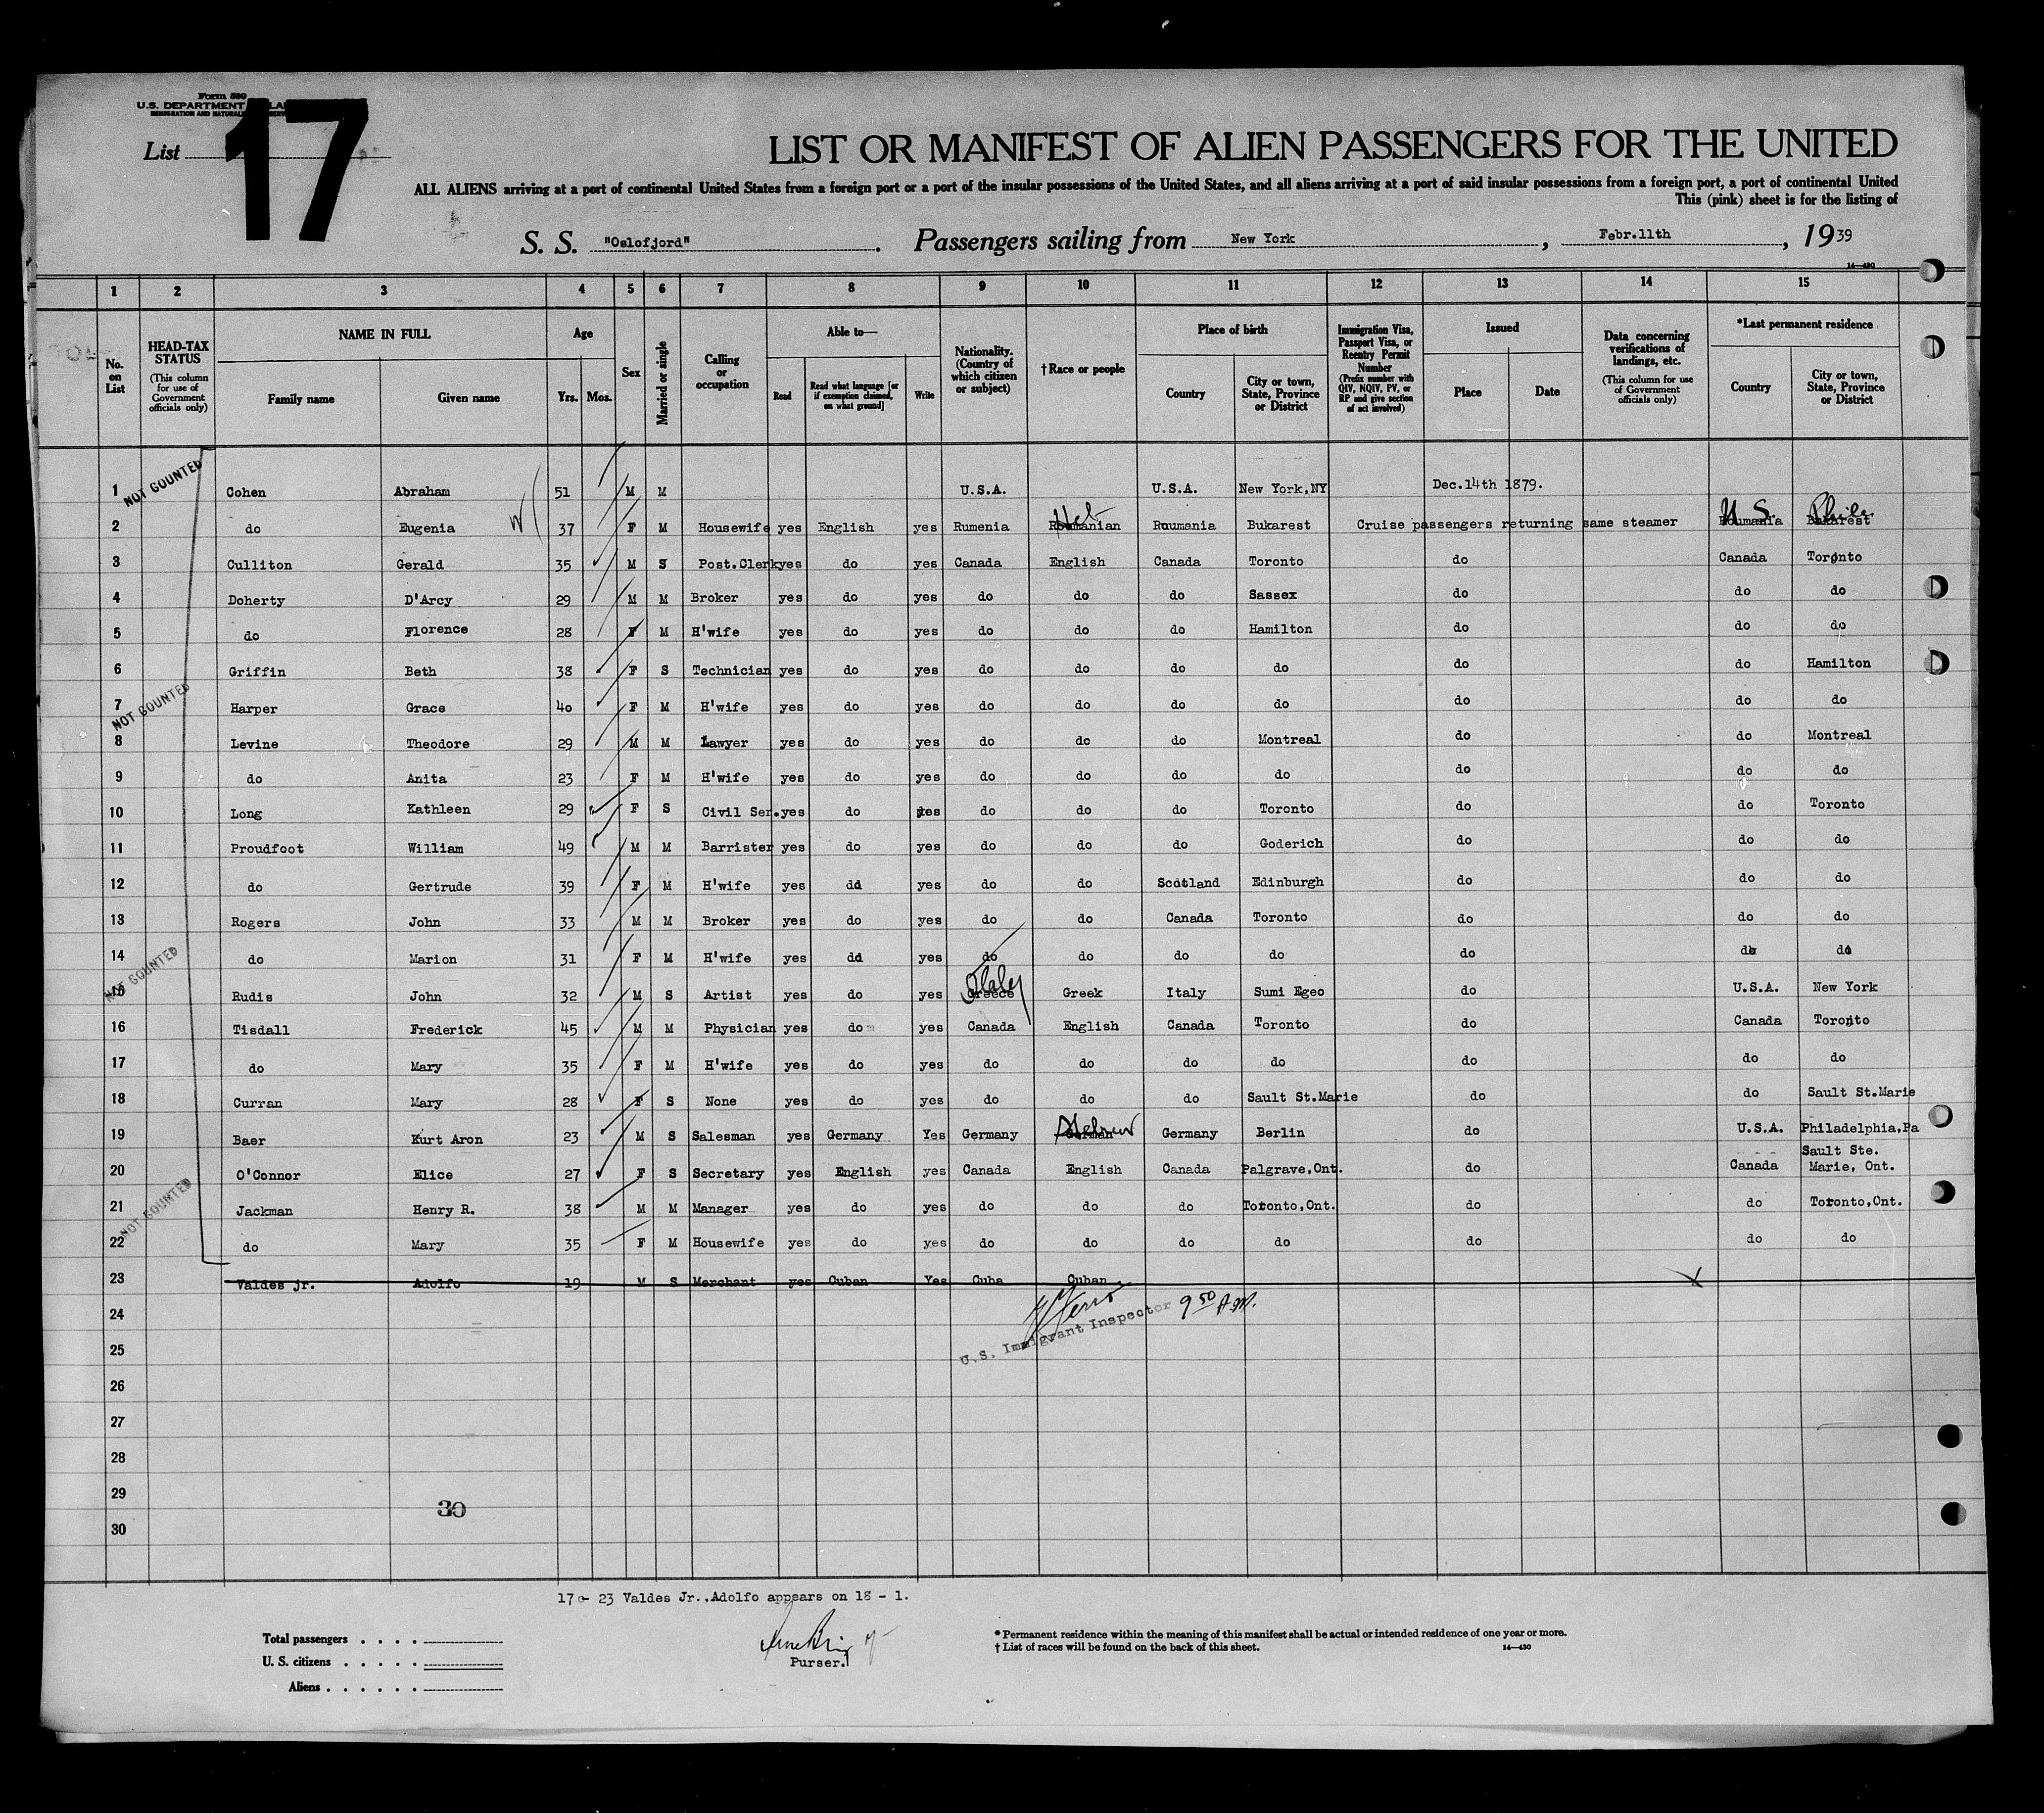 Form 500
U.S. DEPARTMENT
IMMIGRATION AND
List 17
LIST OR MANIFEST OF ALIEN PASSENGERS FOR THE UNITED
ALL ALIENS arriving at a port of continental United States from a foreign port or a port of the insular possessions of the United States, and all aliens arriving at a port of said insular possessions from a foreign port, a port of continental United
This (pink) sheet is for the listing of
S. S. "Oslofjord". Passengers sailing from New York, Febr.11th, 1939
14—430
1 2 3 4 5 6 7 8 9 10 11 12 13 14 15
No. on List
HEAD-TAX STATUS (This column for use of Government officials only)
NAME IN FULL Family name Given name
Age Yrs. Mos.
Sex
Married or single
Calling or occupation
Able to— Read Read what language [or if exemption claimed, on what ground] Write
Nationality. (Country of which citizen or subject)
†Race or people
Place of birth Country City or town, State, Province or District
Immigration Visa, Passport Visa, or Reentry Permit Number (Prefix number with QIV, NQIV, PV, or RP and give section of act involved)
Issued Place Date
Data concerning verifications of landings, etc. (This column for use of Government officials only)
*Last permanent residence Country City or town, State, Province or District
NOT COUNTED
1 Cohen Abraham 51 M M U.S.A. U.S.A. New York,NY Dec.14th 1879.
2 do Eugenia 37 F M Housewife yes English yes Rumenia Roumanian Heb Roumania Bukarest Cruise passengers returning same steamer Roumania U.S. Bukarest Phila
3 Culliton Gerald 35 M S Post.Clerk yes do yes Canada English Canada Toronto do Canada Toronto
4 Doherty D'Arcy 29 M M Broker yes do yes do do do Sassex do do do
5 do Florence 28 F M H'wife yes do yes do do do Hamilton do do do
6 Griffin Beth 38 F S Technician yes do yes do do do do do do Hamilton
NOT COUNTED
7 Harper Grace 40 F M H'wife yes do yes do do do do do do do
8 Levine Theodore 29 M M Lawyer yes do yes do do do Montreal do do Montreal
9 do Anita 23 F M H'wife yes do yes do do do do do do do
10 Long Kathleen 29 F S Civil Ser. yes do yes do do do Toronto do do Toronto
11 Proudfoot William 49 M M Barrister yes do yes do do do Goderich do do do
12 do Gertrude 39 F M H'wife yes dd yes do do Scotland Edinburgh do do do
13 Rogers John 33 M M Broker yes do yes do do Canada Toronto do do do
14 do Marion 31 F M H'wife yes dd yes do do do do do do do
NOT COUNTED
15 Rudis John 32 M S Artist yes do yes Greece Italy Greek Italy Sumi Egeo do U.S.A. New York
16 Tisdall Frederick 45 M M Physician yes do yes Canada English Canada Toronto do Canada Toronto
17 do Mary 35 F M H'wife yes do yes do do do do do do do
18 Curran Mary 28 F S None yes do yes do do do Sault St.Marie do do Sault St.Marie
19 Baer Kurt Aron 23 M S Salesman yes Germany Yes Germany German Hebrew Germany Berlin do U.S.A. Philadelphia,Pa
20 O'Connor Elice 27 F S Secretary yes English yes Canada English Canada Palgrave,Ont. do Canada Sault Ste. Marie, Ont.
NOT COUNTED
21 Jackman Henry R. 38 M M Manager yes do yes do do do Toronto,Ont. do do Toronto,Ont.
22 do Mary 35 F M Housewife yes do yes do do do do do do do
23 Valdes jr. Adolfo 19 M S Merchant yes Cuban Yes Cuba Cuban
24
9 50 A.M.
U.S. Immigrant Inspector
25
26
27
28
29
30
30
17 - 23 Valdes Jr..Adolfo appears on 18 - 1.
Total passengers
U. S. citizens
Aliens
Purser.
* Permanent residence within the meaning of this manifest shall be actual or intended residence of one year or more.
† List of races will be found on the back of this sheet.
14—430